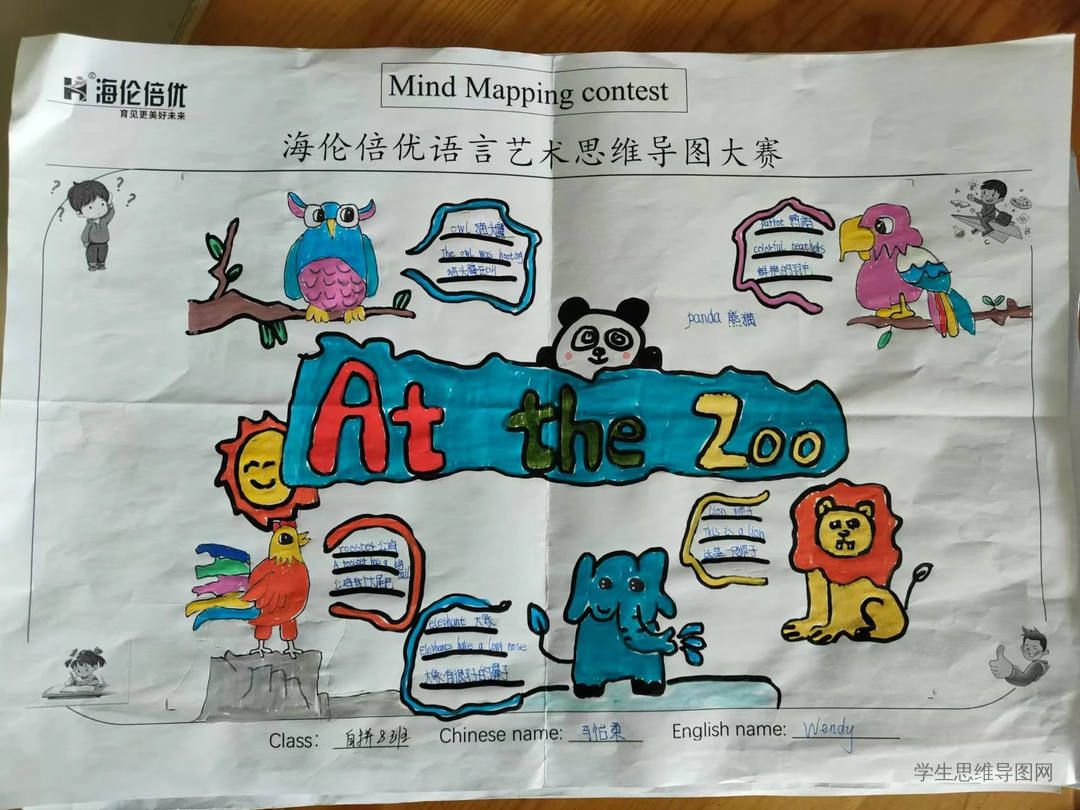 海伦倍优
育见更美好未来
Mind Mapping contest
海伦倍优语言艺术思维导图大赛
owl 猫头鹰
The owl was hooting
猫头鹰在叫
parrot 鹦鹉
colorful feathers
鲜艳的羽毛
panda 熊猫
At the Zoo
rooster 公鸡
A rooster has a big tail
公鸡有个大尾巴
lion 狮子
This is a lion
这是一只狮子
elephant 大象
Elephants have a long nose
大象有很长的鼻子
Class: 自拼8班
Chinese name: 马怡柔
English name: Wendy
学生思维导图网